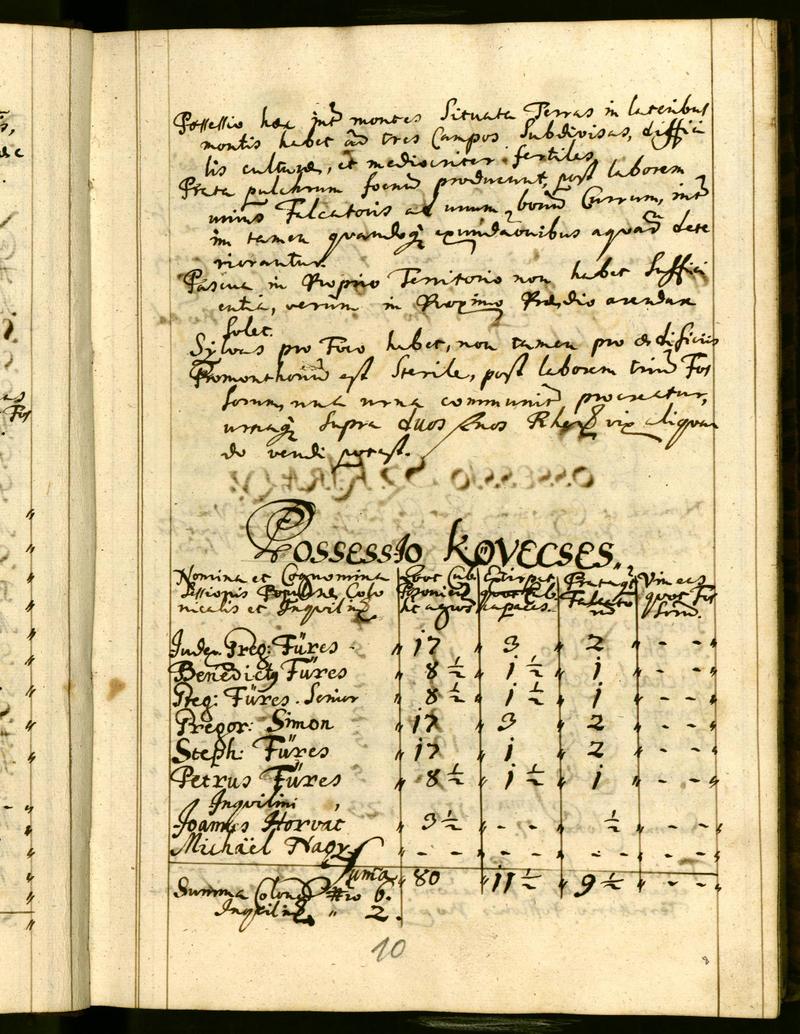 Possessio haec int montes Situata Terras in lateribus
montis habet ad tres Campos Subdivisas, diffici
lis culturae, et mediocriter fertiles,
Prata pulchrum foenu producunt, post laborem
unius Falcatoris ad unum bovu Currum, int
im tamen quandoq exundaonibus aquar dete
riorantur.
Pascua in Proprio Territorio non habet Suffici
entia, verum in Proximo Praedio arendare
Solet.
Sylvas pro Foco habet, non tamen pro aedificiis
Promonthoriu est Sterile, post laborem triu Fos
sorum, una urna communit procreatur,
urnaq Supra duos Rhen vix aliquan
do vendi potest.
Possessio Kövecses.
Nomina et Cognomina
Possessionis Colo
nicalis et Inquilin
Quot Cub
Poson
lit agros
Extirpat
quot Cub.
capaces.
Prataq
Falcato
ru
Vineas
quot Fos
Soru.
Judex Greg: Füres „ 17 „ 3 „ 2 „ - - „
Benedicty Füres „ 8 ½ „ 1 ½ „ 1 „ - - „
Greg: Füres. Senior „ 8 ½ „ 1 ½ „ 1 „ - - „
Gregor: Simon „ 17 „ 3 „ 2 „ - - „
Steph: Füres „ 17 „ 1 „ 2 „ - - „
Petrus Füres „ 8 ½ „ 1 ½ „ 1 „ - - „
Inquilini
Joannes Horvat „ 3 ½ „ - - „ ½ „ - - „
Michaël Nagy „ - - „ - - „ - - „ - - „
Suma „ 80 „ 11 ½ „ 9 ½ „ - - „
Summa Colono 6.
Inquilin „ 2.
10